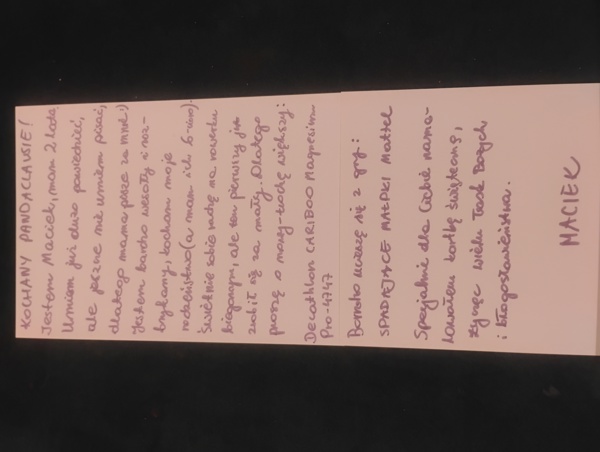 KOCHANY PANDACLAUSIE!
Jestem Maciek, mam 2 lata.
Umiem już dużo powiedzieć,
ale jeszcze nie umiem pisać,
dlatego mama pisze za mnie :)
Jestem bardzo wesoły i roz-
brykany, kocham moje
rodzeństwo (a mam ich 6-cioro).
Świetnie sobie radzę na rowerku
biegowym, ale ten pierwszy już
zrobił się za mały. Dlatego
proszę o nowy - trochę większy:
Decathlon CARIBOO Magnesium
Pro-4747
Bardzo ucieszę się z gry:
SPADAJĄCE MAŁPKI Mattel
Specjalnie dla Ciebie nama-
lowałem kartkę świąteczną,
życząc wielu Łask Bożych
i błogosławieństwa.
MACIEK